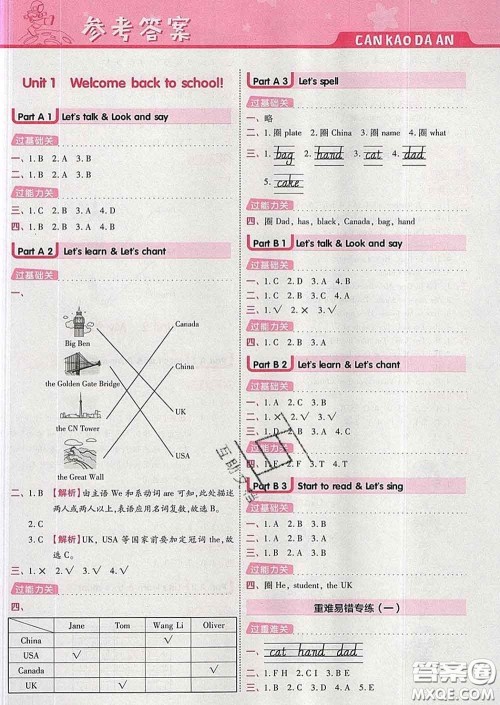 参考答案
CANKAO DA AN
Unit 1 Welcome back to school!
Part A 1 Let's talk & Look and say
过基础关
一、1. B 2. A 3. B
二、1. B 2. A 3. B
过能力关
三、1. C 2. B 3. A 4. D
Part A 2 Let's learn & Let's chant
过基础关
一、
Canada
Big Ben
China
the Golden Gate Bridge
UK
the CN Tower
USA
the Great Wall
二、1. B 【解析】由主语 We 和系动词 are 可知,此处描述
两人或两人以上,表语应用名词复数,故选 B。
2. C
3. C 【解析】UK, USA 等国家前要加定冠词 the,故
选 C。
三、1. × 2. √ 3. √ 4. √
过能力关
四、
Jane Tom Wang Li Oliver
China √
USA √
Canada √
UK √
Part A 3 Let's spell
过基础关
一、略
二、1. 圈 plate 2. 圈 China 3. 圈 name 4. 圈 what
三、1. bag 2. hand 3. cat 4. dad
5. cake
过能力关
四、圈 Dad, has, black, Canada, bag, hand
Part B 1 Let's talk & Look and say
过基础关
一、1. C 2. D 3. A 4. B
二、1. √ 2. × 3. √
过能力关
三、1. C 2. B 3. A
Part B 2 Let's learn & Let's chant
过基础关
一、1. × 2. √ 3. √ 4. ×
二、1. C 2. A 3. B
过能力关
三、1. F 2. F 3. T 4. T
Part B 3 Start to read & Let's sing
过基础关
一、1. A 2. B 3. B
二、1. A 2. B 3. C 4. A
三、1. C 2. A 3. B
过能力关
四、圈 He, student, the UK
重难易错专练(一)
过重难关
一、cat hand dad
二、1. F H 2. B C 3. C I
三、1. B 2. A 3. B
四、1. C 2. B 3. A
互助文档
答案圈
MXQE.COM